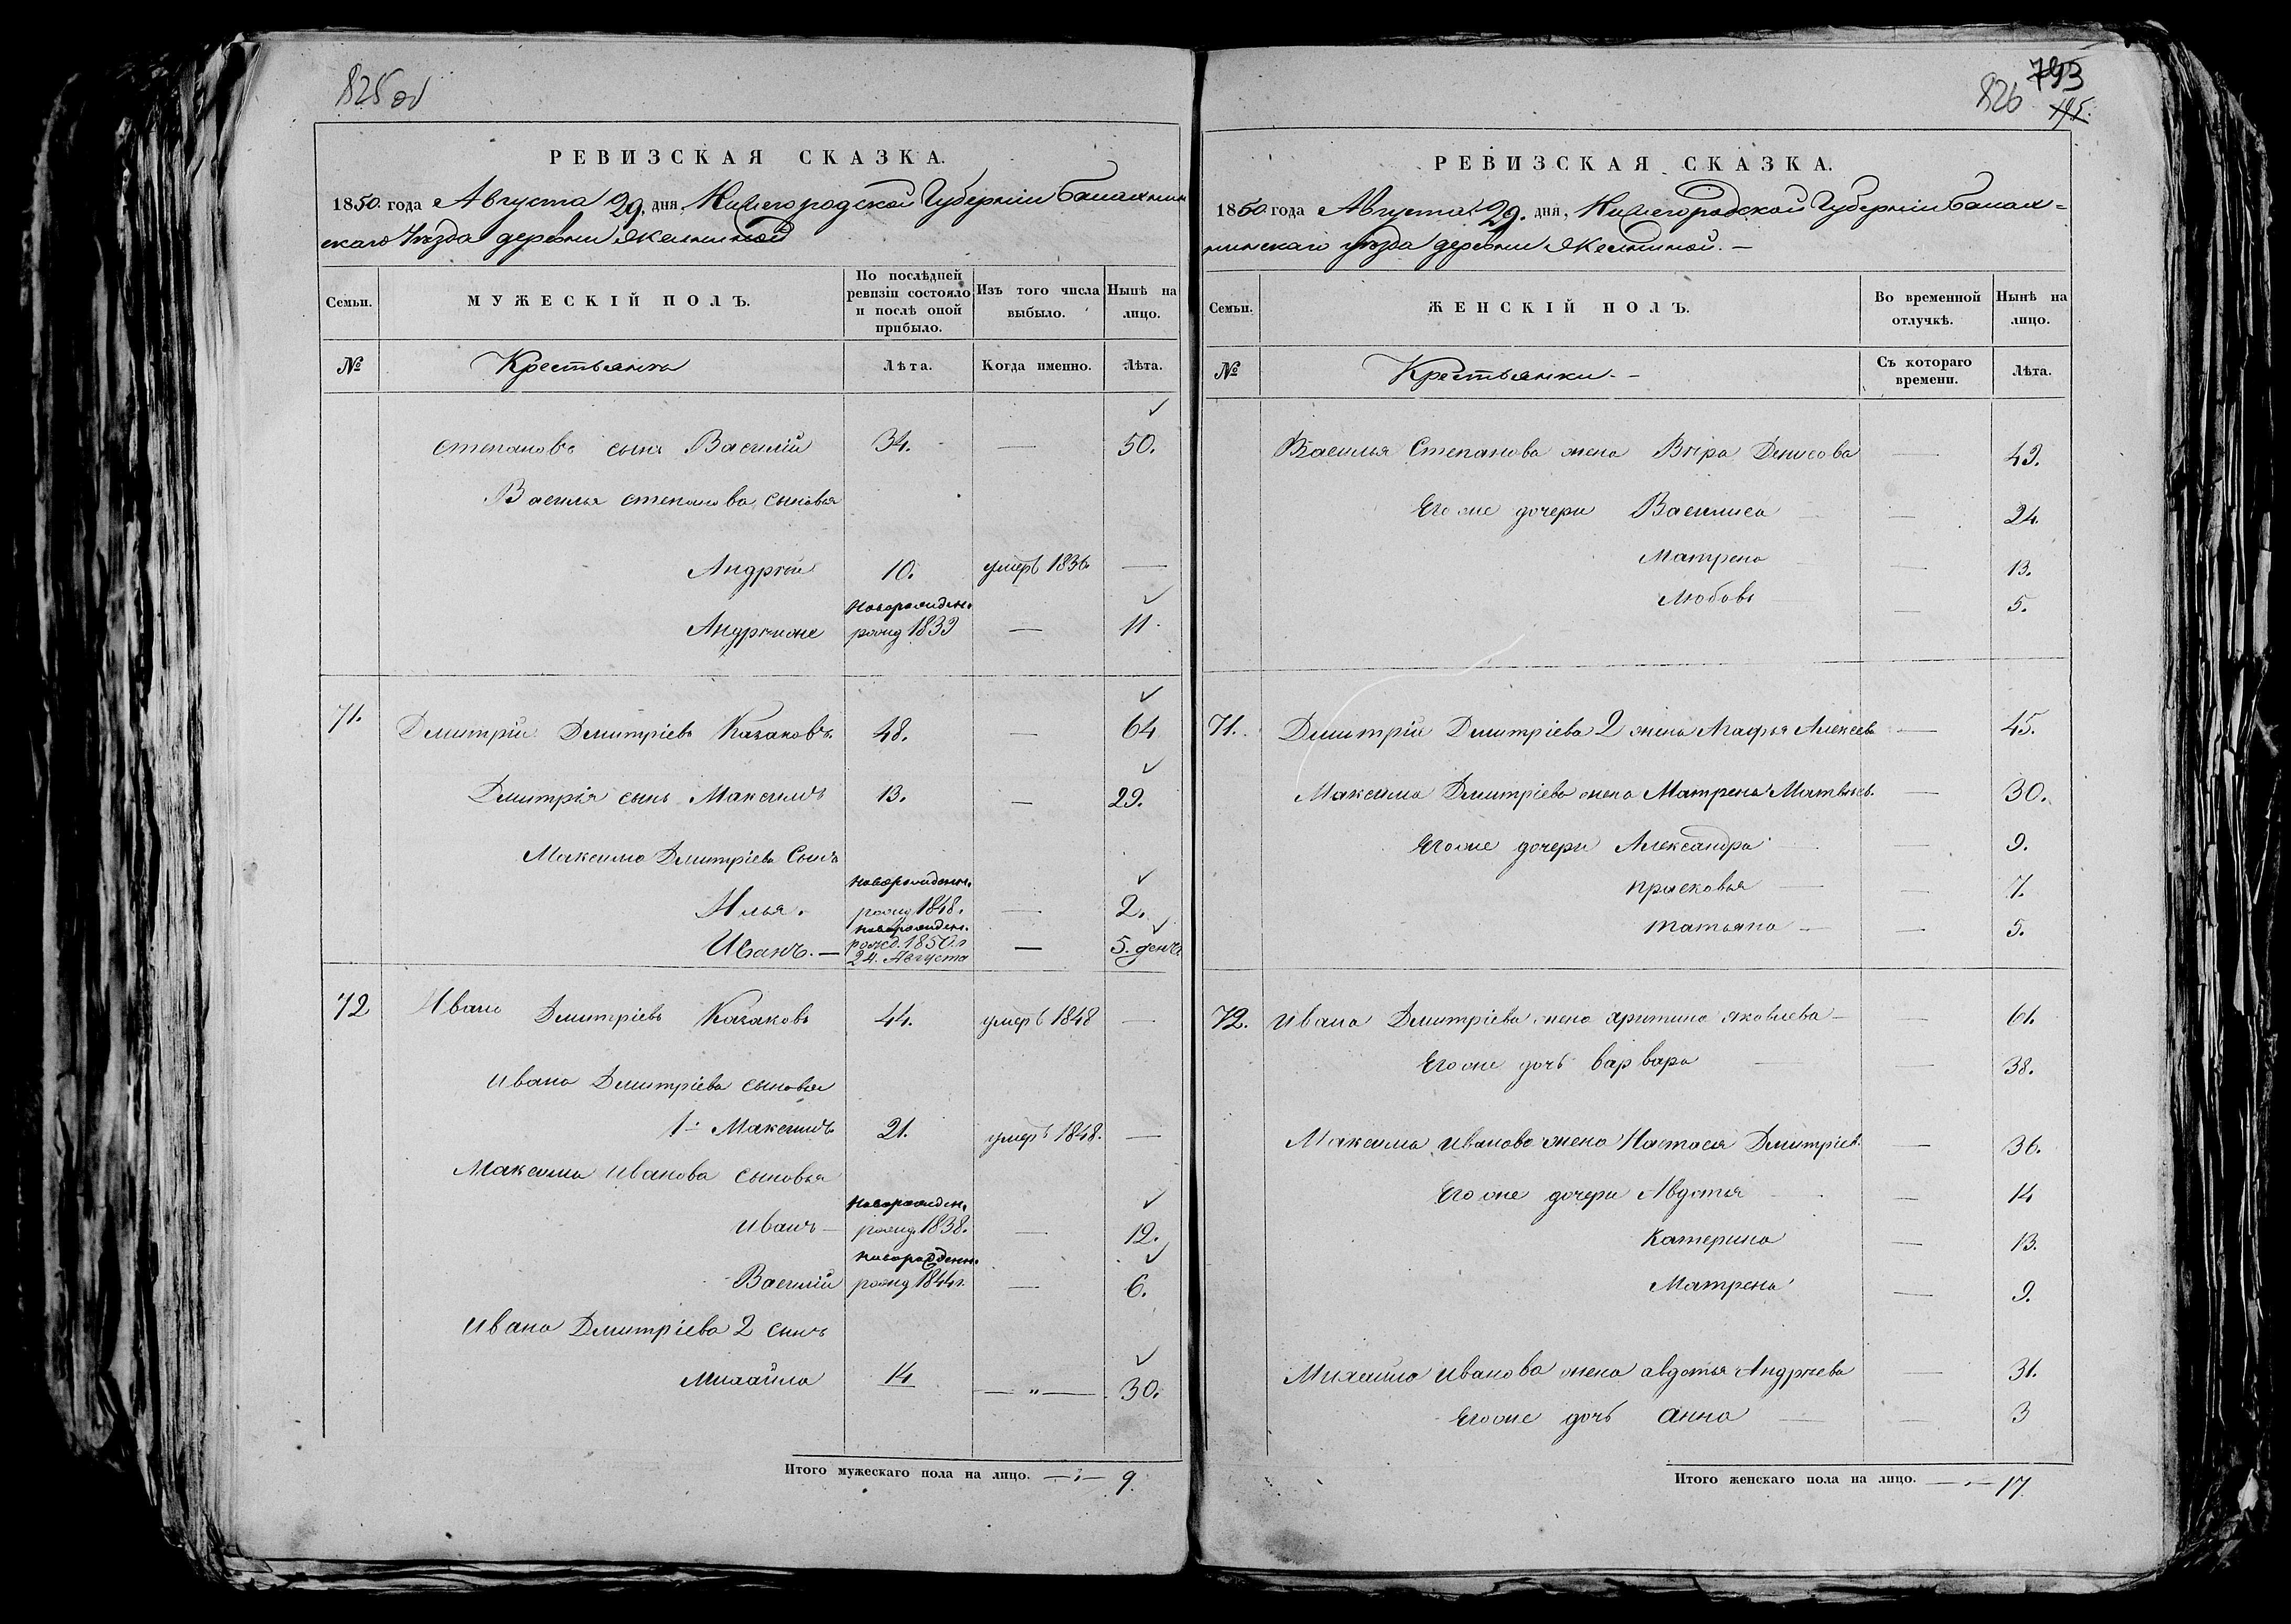 825 об
РЕВИЗСКАЯ СКАЗКА.
1850 года Августа 29, дня, Нижегородской Губерніи Балахнин
скаго Уезда деревни
Семьи.
МУЖЕСКІЙ ПОЛЪ.
По послѣдней ревизіи состояло и послѣ оной прибыло.
Изъ того числа выбыло.
Нынѣ на лицо.
№
Крестьяна
Лѣта.
Когда именно.
Лѣта.
степановъ сынъ Василий 34. — 50.
Василья степанова сыновья
Андрей 10. умеръ 1836 —
новорожден.
рожд 1839 — 11.
71. Дмитрій Дмитріевъ Казаковъ 48. — 64
Дмитрія сынъ Максимъ 13. — 29.
Максима Дмитріева Сынъ
новорожденн.
Илья. рожд. 1848. — 2.
новорожден.
Иванъ. — рожд. 1850 г — 5. денъ
24. Августа
72 Иванъ Дмитріевъ Казаковъ 44. умеръ 1848 —
Ивана Дмитріева сыновья
1й Максимъ 21. умеръ 1848. —
Максима Иванова сыновья
новорожден.
Иванъ — рожд. 1838. — 12.
новорожденн.
Василій рожд 1844 г. — 6.
Ивана Дмитріева 2 сынъ
Михайла 14 — „ — 30.
Итого мужескаго пола на лицо. — „ — 9.
793
826
195.
РЕВИЗСКАЯ СКАЗКА.
1850 года Августа 29. дня, Нижегородской Губерніи Балах=
нинскаго уезда деревни
Семьи.
ЖЕНСКІЙ ПОЛЪ.
Во временной отлучкѣ.
Нынѣ на лицо.
№
Крестьянки. —
Съ котораго времени.
Лѣта.
Василья Степанова жена Вѣра Денисова — 49.
Его же дочери Василиса — 24.
Матрена — 13.
Любовь — 5.
71. Дмитрія Дмитріева 2 жена Алексеева — 45.
Максима Дмитріева жена Матрена Матвеев. — 30.
Его же дочери Александра — 9.
Прасковья — 7.
Татьяна — 5.
72. Ивана Дмитріева жена яковлева — 61.
Его же дочь варвара — 38.
Максима Иванова жена Настасья Дмитріев. — 36.
Его же дочери Авдотья — 14
Катерина — 13.
Матрена — 9.
Михайла Иванова жена авдотья Андреева — 31.
Его же дочь Анна — 3
Итого женскаго пола на лицо. — „ — 17.